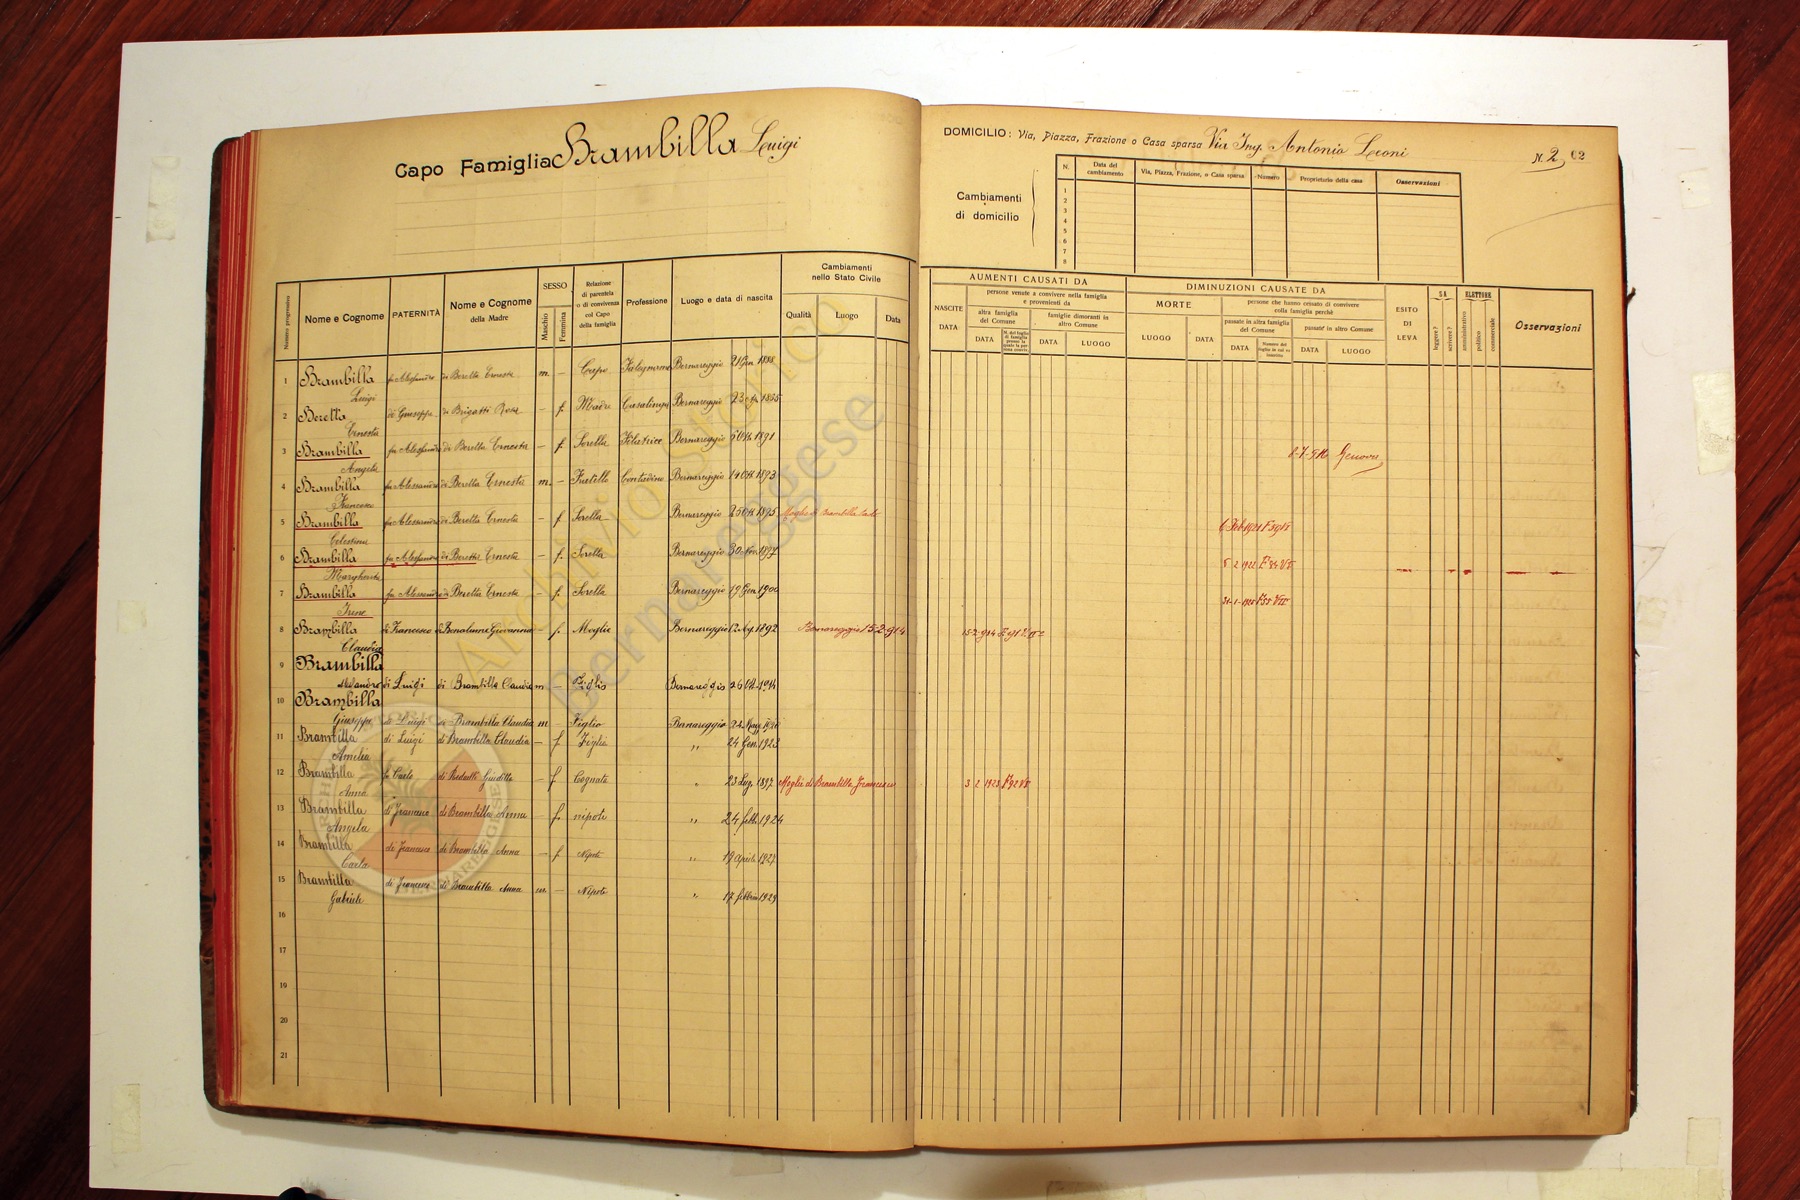 Capo Famiglia Brambilla Luigi
Numero progressivo
Nome e Cognome
PATERNITÀ
Nome e Cognome della Madre
SESSO
Maschio
Femmina
Relazione di parentela o di convivenza col Capo della famiglia
Professione
Luogo e data di nascita
Cambiamenti nello Stato Civile
Qualità
Luogo
Data
1 Brambilla fu Alessandro di Beretta Ernesta m. – Capo Falegname Bernareggio 21 Gen 1888
Luigi
2 Beretta di Giuseppe di Brigatti Rosa – f. Madre Casalinga Bernareggio 1865
Ernesta
3 Brambilla fu Alessandro di Beretta Ernesta – f. Sorella Filatrice Bernareggio 5 Ott 1891
Angela
4 Brambilla fu Alessandro di Beretta Ernesta m. – Fratello Contadino Bernareggio 14 Ott 1893
Francesco
5 Brambilla fu Alessandro di Beretta Ernesta – f Sorella Bernareggio 25 Ott 1895 Moglie di Brambilla
Celestina
6 Brambilla fu Alessandro di Beretta Ernesta – f. Sorella Bernareggio 30 Nov 1897
Margherita
7 Brambilla fu Alessandro di Beretta Ernesta – f. Sorella Bernareggio 19 Gen 1900
Irene
8 Brambilla di Francesco di Bonalume Giovannina – f. Moglie Bernareggio 12 Ag. 1892 Bernareggio 15-2-914
Claudia
9 Brambilla
Alessandro di Luigi di Brambilla Claudia m – Figlio Bernareggio 26 Ott. 1914
10 Brambilla
Giuseppe di Luigi di Brambilla Claudia m – Figlio Bernareggio 22 1920
11 Brambilla di Luigi di Brambilla Claudia – f. Figlia " 24 Gen 1923
Amelia
12 Brambilla fu Carlo di Redaelli Giuditta – f Cognata " 23 Lug. 1897 Moglie di Brambilla Francesco
Anna
13 Brambilla di Francesco di Brambilla Anna – f. nipote " 24 febb. 1924
Angela
14 Brambilla di Francesco di Brambilla Anna – f Nipote " 19 Aprile 1927
Carla
15 Brambilla di Francesco di Brambilla Anna m. – Nipote " 17 febbraio 1929
Gabriele
16
17
18
19
20
21
DOMICILIO: Via, Piazza, Frazione o Casa sparsa Via Ing. Antonio Leoni N. 2 62
Cambiamenti di domicilio
N.
Data del cambiamento
Via, Piazza, Frazione, o Casa sparsa
Numero
Proprietario della casa
Osservazioni
1
2
3
4
5
6
7
8
AUMENTI CAUSATI DA
NASCITE
DATA
persone venute a convivere nella famiglia e provenienti da
altra famiglia del Comune
DATA
N. del foglio di famiglia presso la quale la persona conviv.
famiglie dimoranti in altro Comune
DATA
LUOGO
DIMINUZIONI CAUSATE DA
MORTE
LUOGO
DATA
persone che hanno cessato di convivere colla famiglia perchè
passate in altra famiglia del Comune
DATA
Numero del foglio in cui va inscritto
passate in altro Comune
DATA
LUOGO
ESITO DI LEVA
SA
leggere?
scrivere?
ELETTORE
amministrativo
politico
commerciale
Osservazioni
Genova
6 Feb 1921
5 2 1922
31-1-1925 F55 VII
15-2-914
3 2 1923 F92 VI
Archivio Storico
Bernareggese